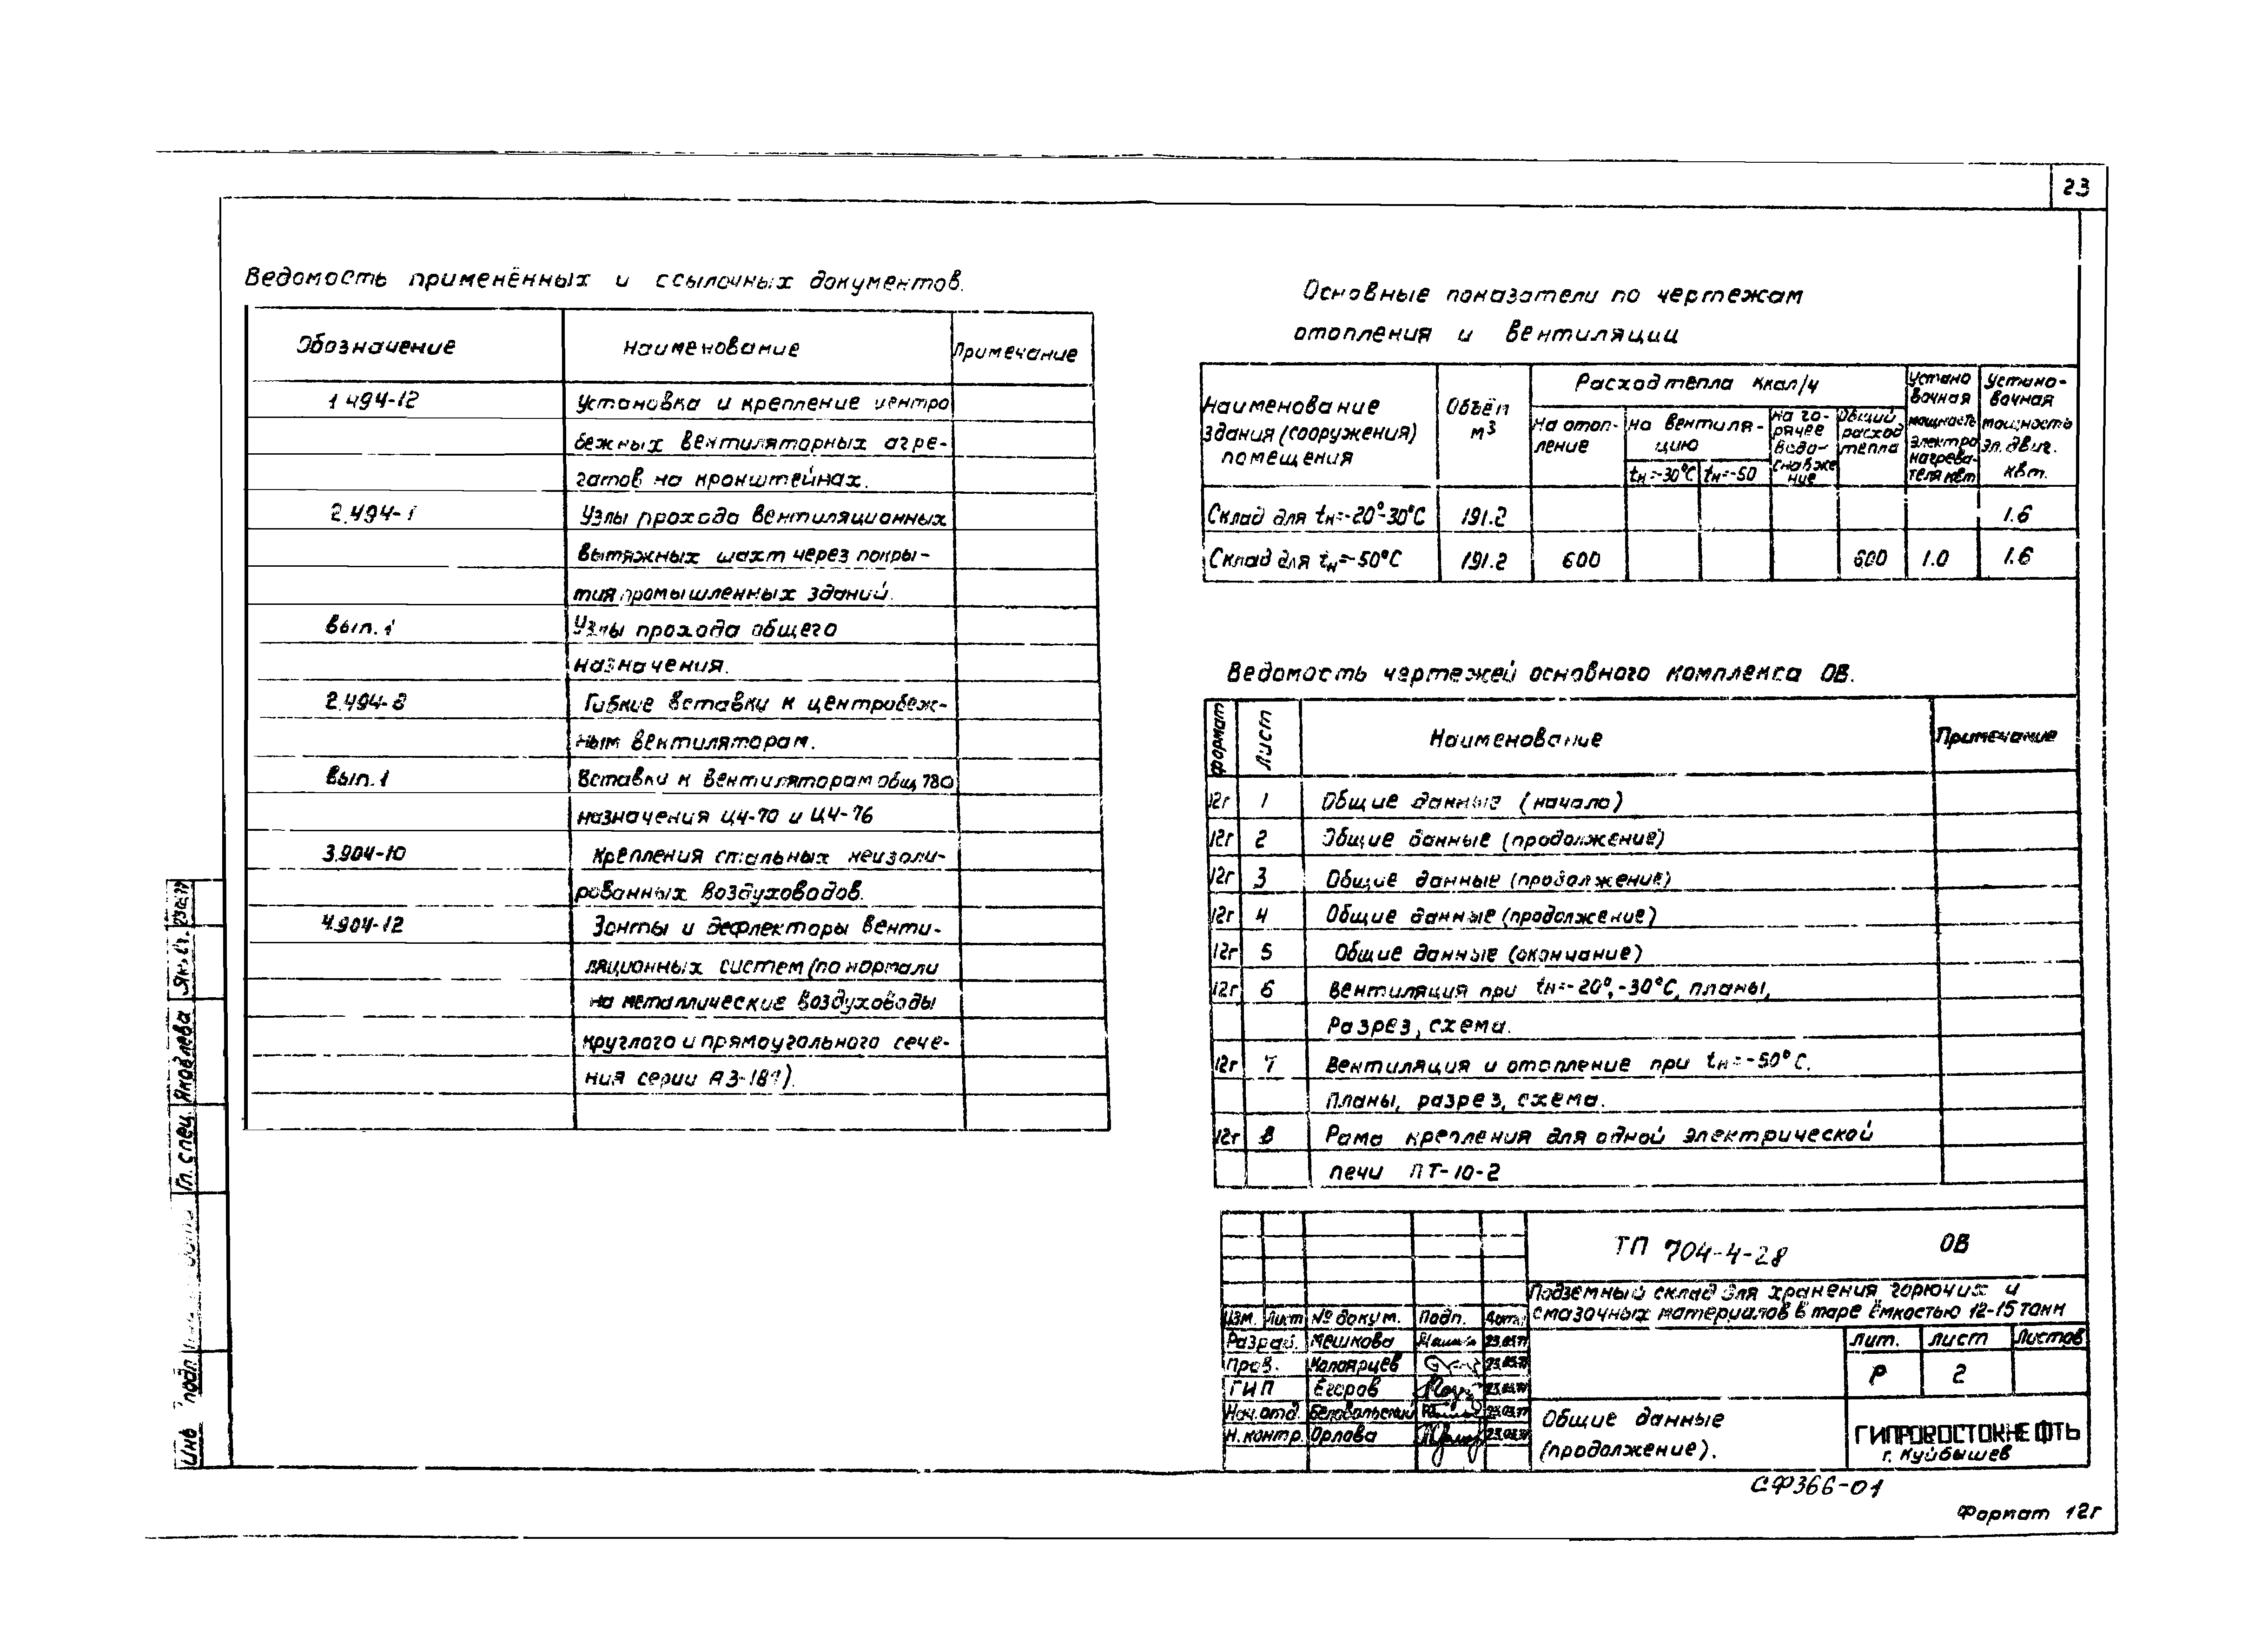 23
Ведомость применённых и ссылочных документов.
Обозначение Наименование Примечание
1.494-12 Установка и крепление центро
бежных вентиляторных агре-
гатов на кронштейнах.
2.494-1 Узлы прохода вентиляционных
вытяжных шахт через покры-
тия промышленных зданий.
Вып. 1 Узлы прохода общего
назначения.
2.494-8 Гибкие вставки к центробеж-
ным вентиляторам.
Вып. 1 Вставки к вентиляторам общ
назначения Ц4-70 и Ц4-76
3.904-10 Крепления стальных неизоли-
рованных воздуховодов.
4.904-12 Зонты и дефлекторы венти-
ляционных систем (по нормали
на металлические воздуховоды
круглого и прямоугольного сече-
ния серии АЗ-187).
Основные показатели по чертежам
отопления и вентиляции
Наименование
здания (сооружения)
помещения
Объём
м³
Расход тепла ккал/ч
На отоп-
ление
на вентиля-
цию
tн=-30°С tн=-50
на го-
рячее
водо-
снабже
ние
Общий
расход
тепла
Устано
вочная
мощность
электро
нагрева-
теля квт
Устано-
вочная
мощность
эл. двиг.
квт.
Склад для tн=-20°-30°С 191.2 1.6
Склад для tн=-50°С 191.2 600 600 1.0 1.6
Ведомость чертежей основного комплекса ОВ.
Формат Лист Наименование Примечание
12г 1 Общие данные (начало)
12г 2 Общие данные (продолжение)
12г 3 Общие данные (продолжение)
12г 4 Общие данные (продолжение)
12г 5 Общие данные (окончание)
12г 6 Вентиляция при tн=-20°,-30°С, планы,
Разрез, схема.
12г 7 Вентиляция и отопление при tн=-50°С.
Планы, разрез, схема.
12г 8 Рама крепления для одной электрической
печи ПТ-10-2
ТП 704-4-28 ОВ
Подземный склад для хранения горючих и
смазочных материалов в таре ёмкостью 12-15 тонн
Изм. Лист № докум. Подп. Дата
Разраб. Мешкова 23.03.77
Пров. Калоярцев 23.03.77
ГИП Егоров 23.03.77
Нач. отд. Беловольский 23.03.77
Н. контр. Орлова 23.03.77
Лит. Лист Листов
Р 2
Общие данные
(продолжение).
ГИПРОВОСТОКНЕФТЬ
г. Куйбышев
СФ366-01
Формат 12г
Гл. спец. Яковлева
Инв подл